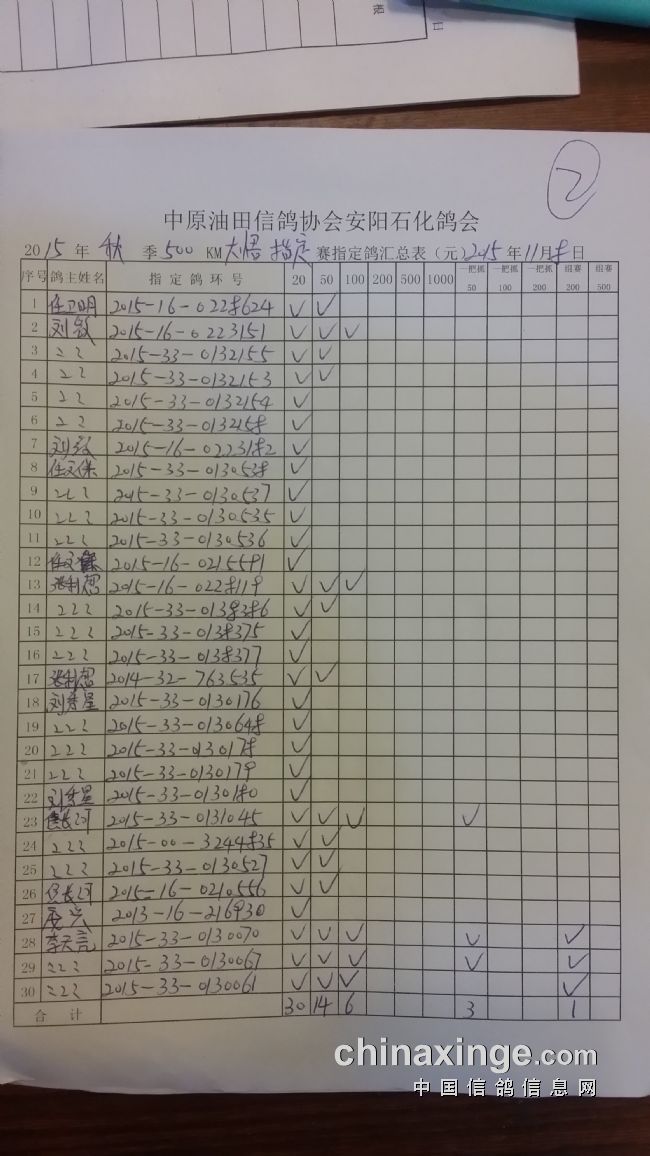 2
中原油田信鸽协会安阳石化鸽会
2015年 秋 季 500 KM 大悟 指定 赛指定鸽汇总表（元）2015年11月8日
序号 鸽主姓名 指定鸽环号 20 50 100 200 500 1000 一把抓50 一把抓100 一把抓200 组赛200 组赛500
1 任卫明 2015-16-0228624 √ √
2 刘敏 2015-16-0223151 √ √ √
3 〃 2015-33-0132155 √ √
4 〃 2015-33-0132153 √ √
5 〃 2015-33-0132154 √
6 〃 2015-33-0132158 √
7 刘敏 2015-16-0223182 √
8 任文保 2015-33-0130538 √
9 〃 2015-33-0130537 √
10 〃 2015-33-0130535 √
11 〃 2015-33-0130536 √
12 任文保 2015-16-0215591 √
13 张利恩 2015-16-0228119 √ √ √
14 〃 2015-33-0138386 √ √
15 〃 2015-33-0138375 √
16 〃 2015-33-0138377 √
17 张利恩 2014-32-763535 √ √
18 刘秀星 2015-33-0130176 √
19 〃 2015-33-0130648 √
20 〃 2015-33-0130178 √
21 〃 2015-33-0130179 √
22 刘秀星 2015-33-0130180 √
23 侯长河 2015-33-0131045 √ √ √ √
24 〃 2015-00-3244835 √ √
25 〃 2015-33-0130527 √ √
26 侯长河 2015-16-0210556 √ √
27 2013-16-216930 √
28 李天亮 2015-33-0130070 √ √ √ √ √
29 〃 2015-33-0130067 √ √ √ √ √
30 〃 2015-33-0130061 √ √ √ √
合计 30 14 6 3 1
chinaxinge.com
中国信鸽信息网